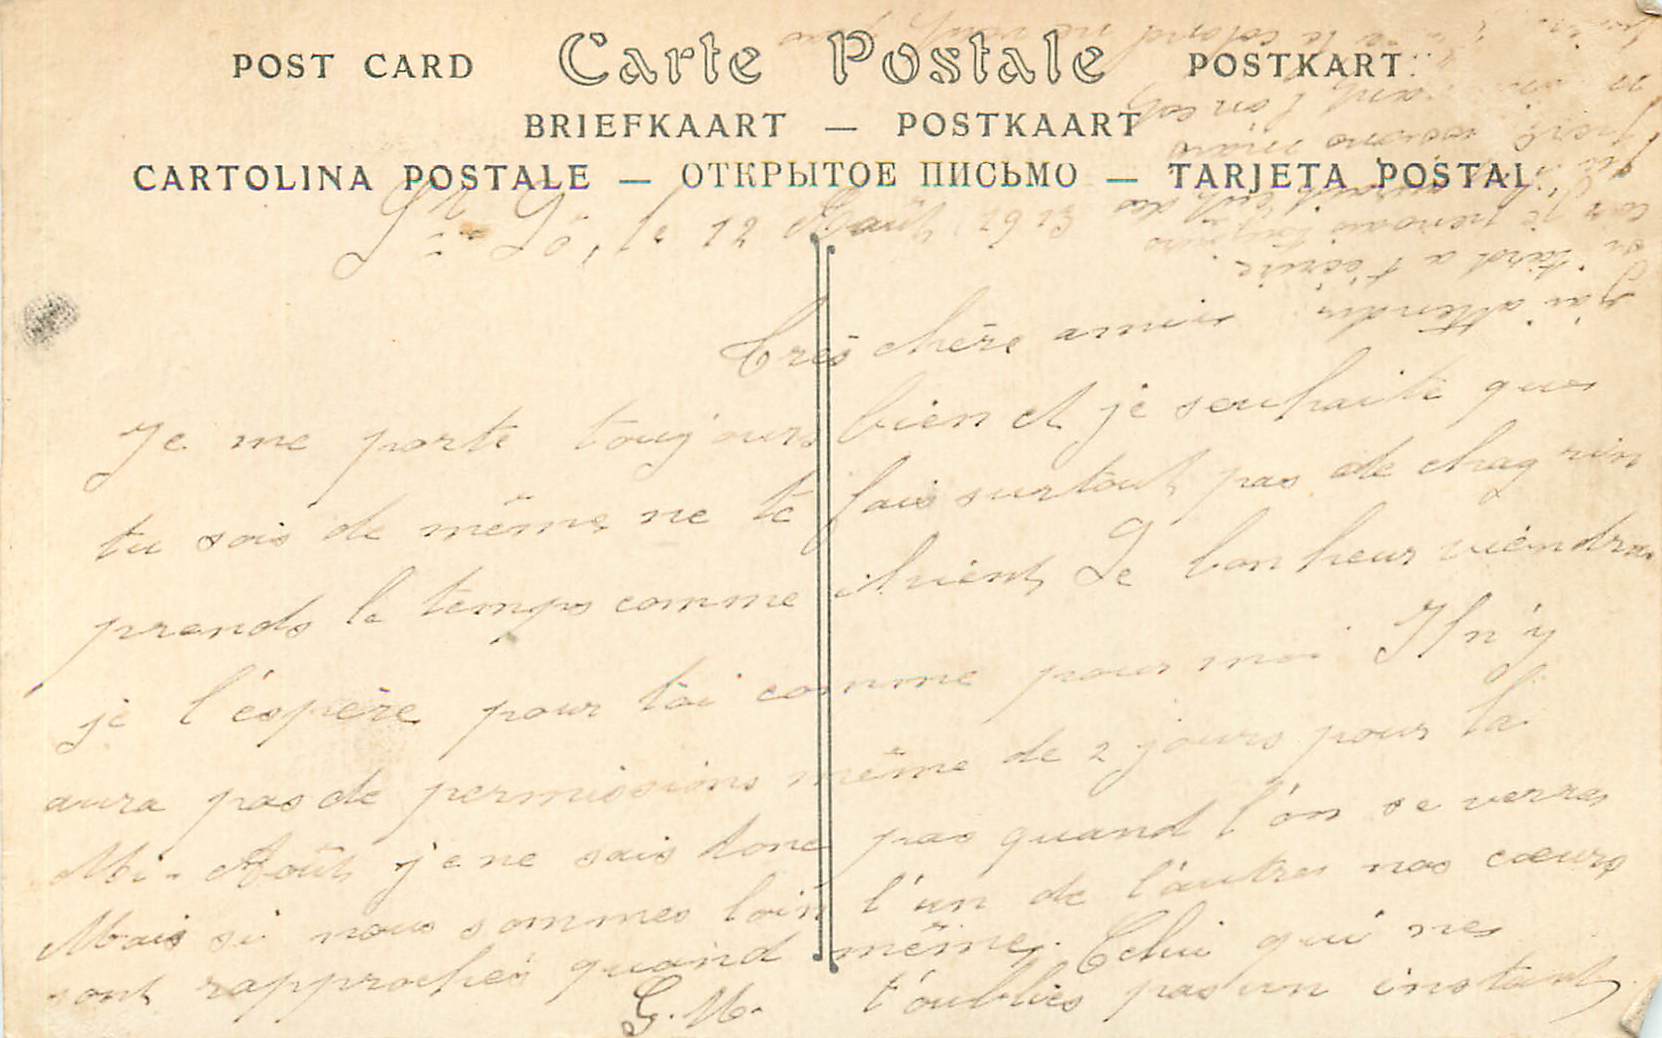 POST CARD Carte Postale POSTKART
BRIEFKAART — POSTKAART
CARTOLINA POSTALE — ОТКРЫТОЕ ПИСЬМО — TARJETA POSTAL
St Lô, le 12 Août 1913
Très chère amie
Je me porte toujours bien et je souhaite que
tu sois de même, ne te fais surtout pas de chagrin
prends le temps comme il vient, Le bonheur viendra
je l'éspère pour toi comme pour moi Il n'y
aura pas de permissions même de 2 jours pour la
Mi-Août, je ne sais donc pas quand l'on se verra
Mais si nous sommes loin l'un de l'autre nos cœurs
sont rapprochés quand même. Celui qui ne
t'oublies pas un instant
G. M.
J'ai attendu
tard a t'écrire
car je pensais toujours
le colonel ne veut pas